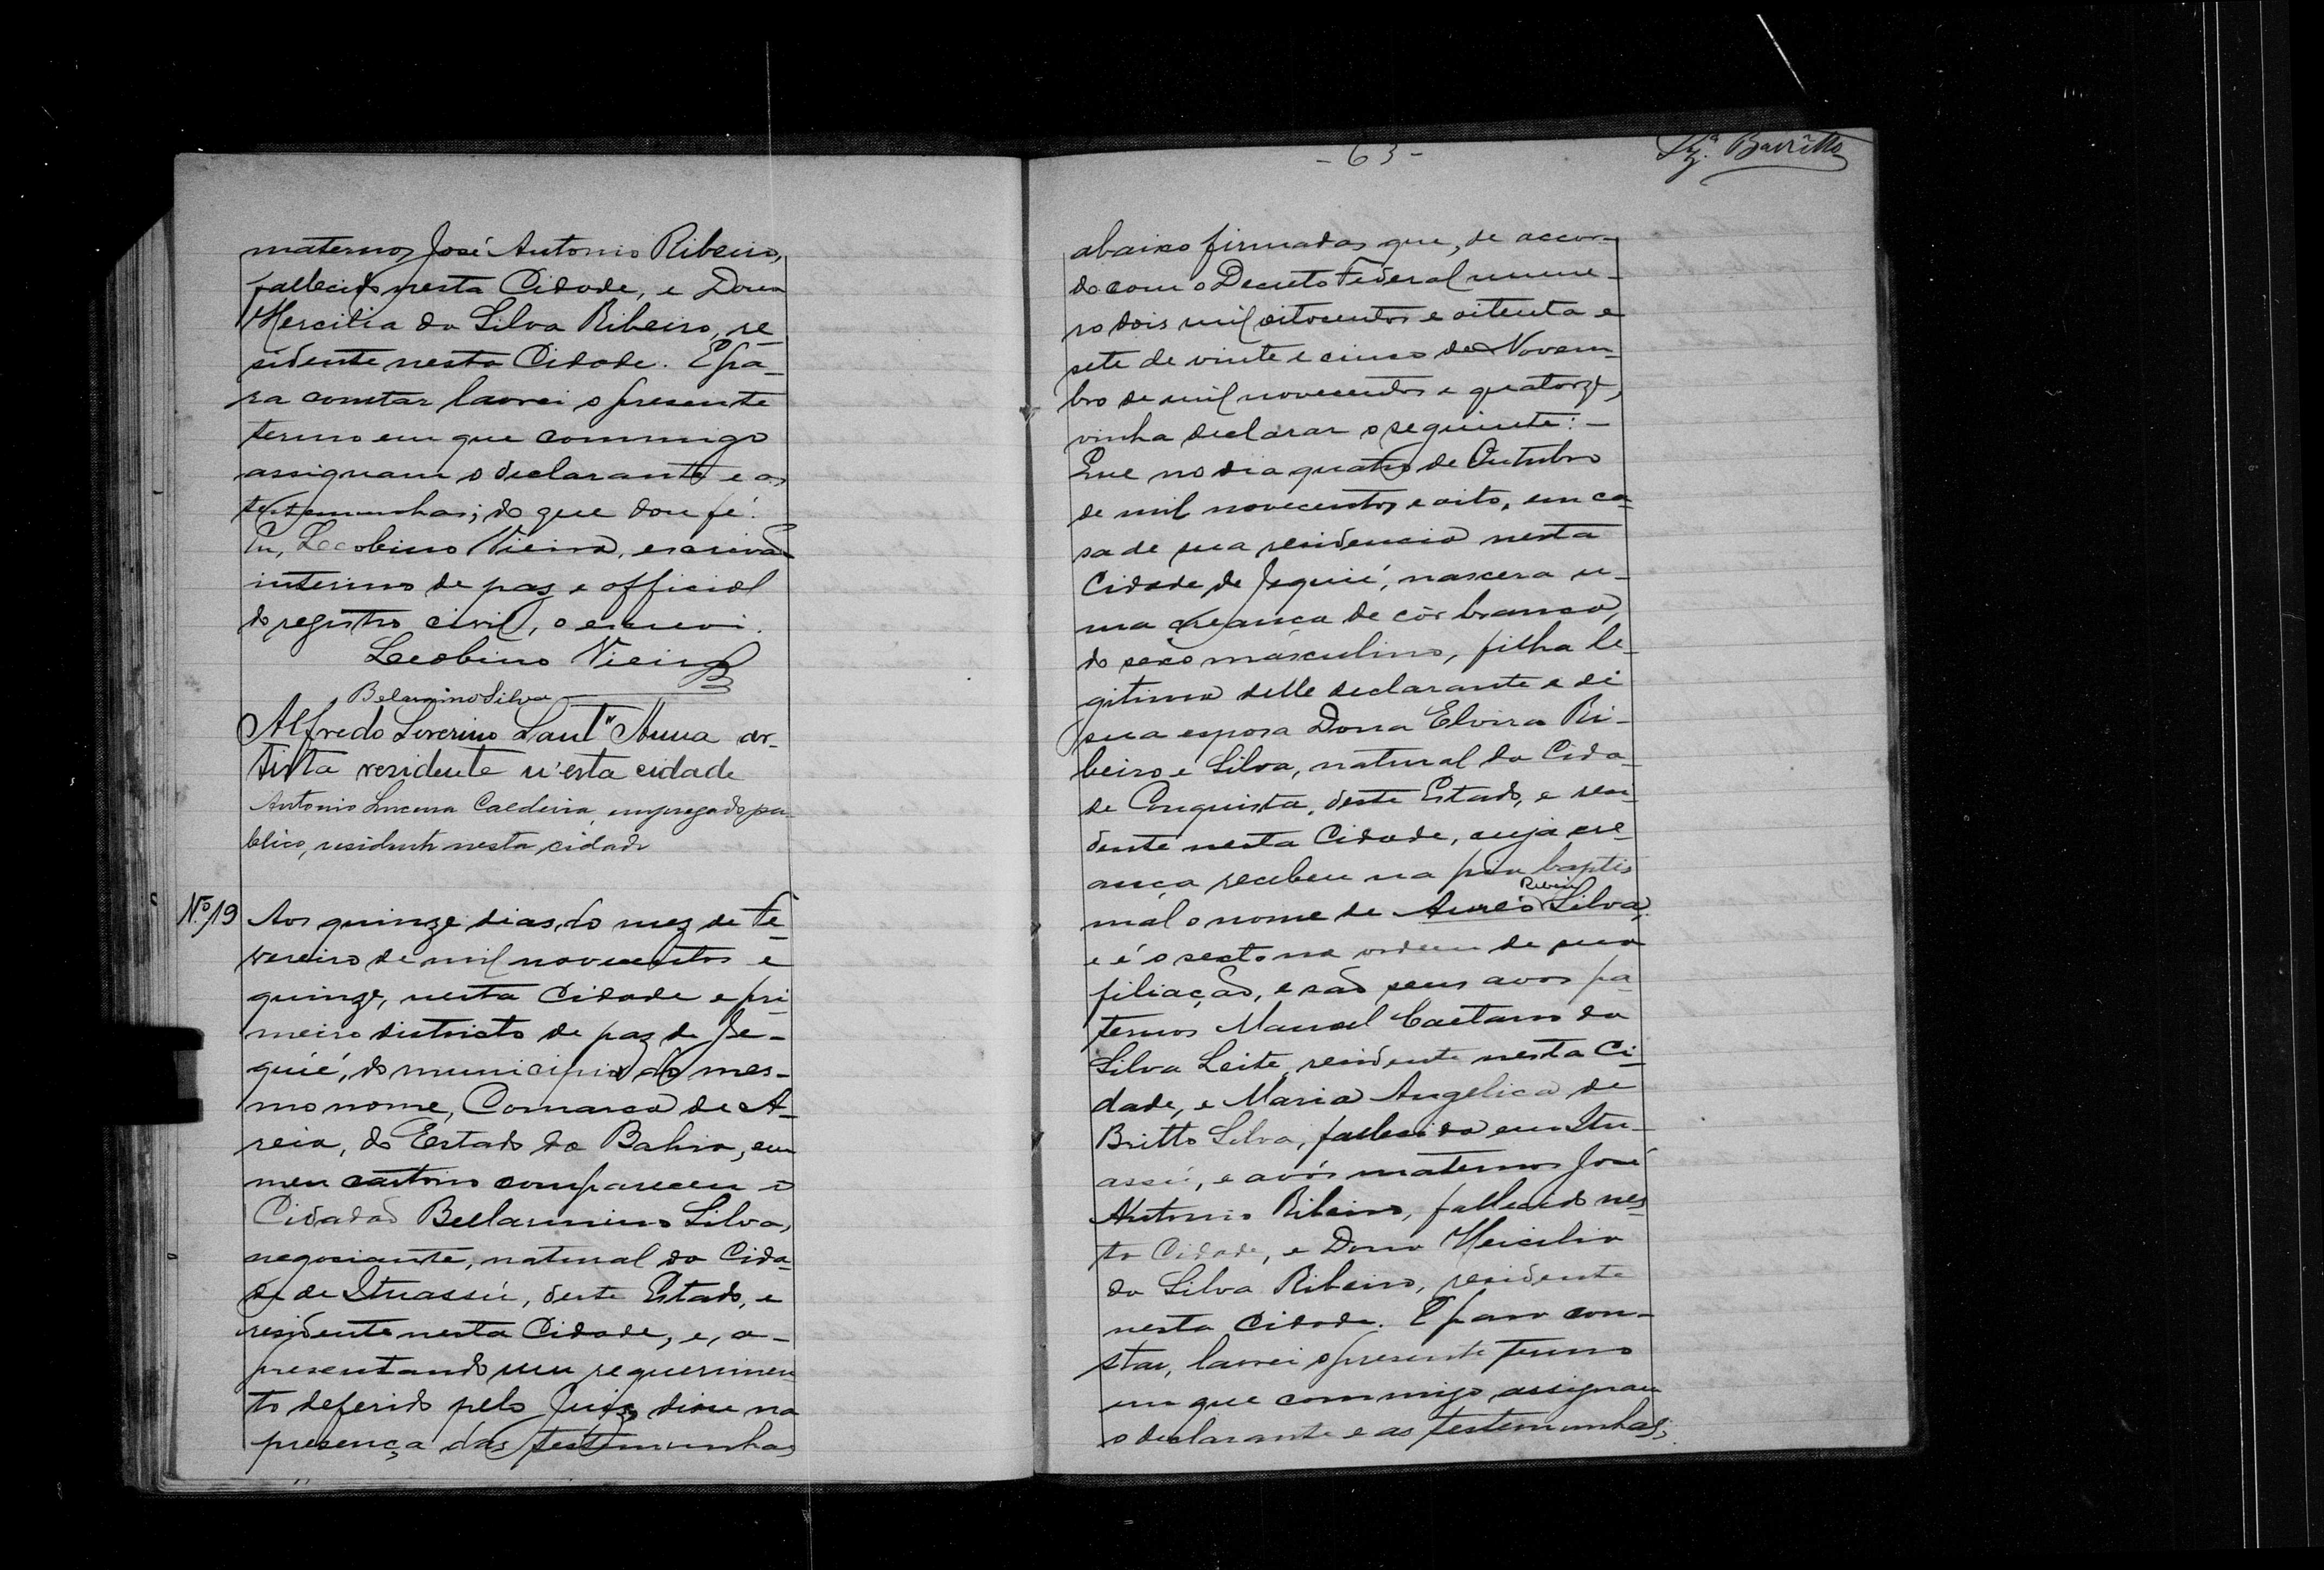 maternos José Antonio Ribeiro,
fallecido nesta Cidade, e Dona
Hercilia da Silva Ribeiro, re-
sidente nesta Cidade. E pa-
ra constar lavrei o presente
termo em que commigo
assignam o declarante e as
testemunhas; do que dou fé.
Eu, Leobino Vieira, escrivão
interino de paz e official
do registro civil, o escrevi.
Leobino Vieira
Belarmino Silva
Alfredo Severino Sant'Anna ar-
tista residente n'esta cidade
Antonio Lucena Caldeira, empregado pu-
blico, residente nesta cidade
Nº 19 Aos quinze dias do mez de Fe-
vereiro de mil novecentos e
quinze, nesta Cidade e pri-
meiro districto de paz de Je-
quié, do municipio do mes-
mo nome, Comarca de A-
reia, do Estado da Bahia, em
meu cartorio compareceu o
Cidadão Bellarmino Silva,
negociante, natural da Cida-
de de Ituassú, deste Estado, e
residente nesta Cidade, e, a-
presentando um requerimen-
to deferido pelo Juiz, disse na
presença das testemunhas
- 63 -
Barretto
abaixo firmadas que, de accor-
do com o Decreto Federal nume-
ro dois mil oitocentos e oitenta e
sete de vinte e cinco de Novem-
bro de mil novecentos e quatorze,
vinha declarar o seguinte: -
Que no dia quatro de Outubro
de mil novecentos e oito, em ca-
sa de sua residencia nesta
Cidade de Jequié, nascera u-
ma creança de côr branca,
do sexo masculino, filha le-
gitima delle declarante e de
sua esposa Dona Elvira Ri-
beiro e Silva, natural da Cida-
de Conquista, deste Estado, e resi-
dente nesta Cidade, cuja cre-
ança recebeu na pia baptis
Ribeiro
mal o nome de Aureo Silva,
e é o sexto na ordem de sua
filiação, e são seus avós pa-
ternos Manoel Caetano da
Silva Leite, residente nesta Ci-
dade, e Maria Angelica de
Britto Silva, fallecida em Itu-
assú, e avós maternos José
Antonio Ribeiro, fallecido nes-
ta Cidade, e Dona Hercilia
da Silva Ribeiro, residente
nesta Cidade. E para con-
star, lavrei o presente termo
em que commigo assignam
o declarante e as testemunhas;